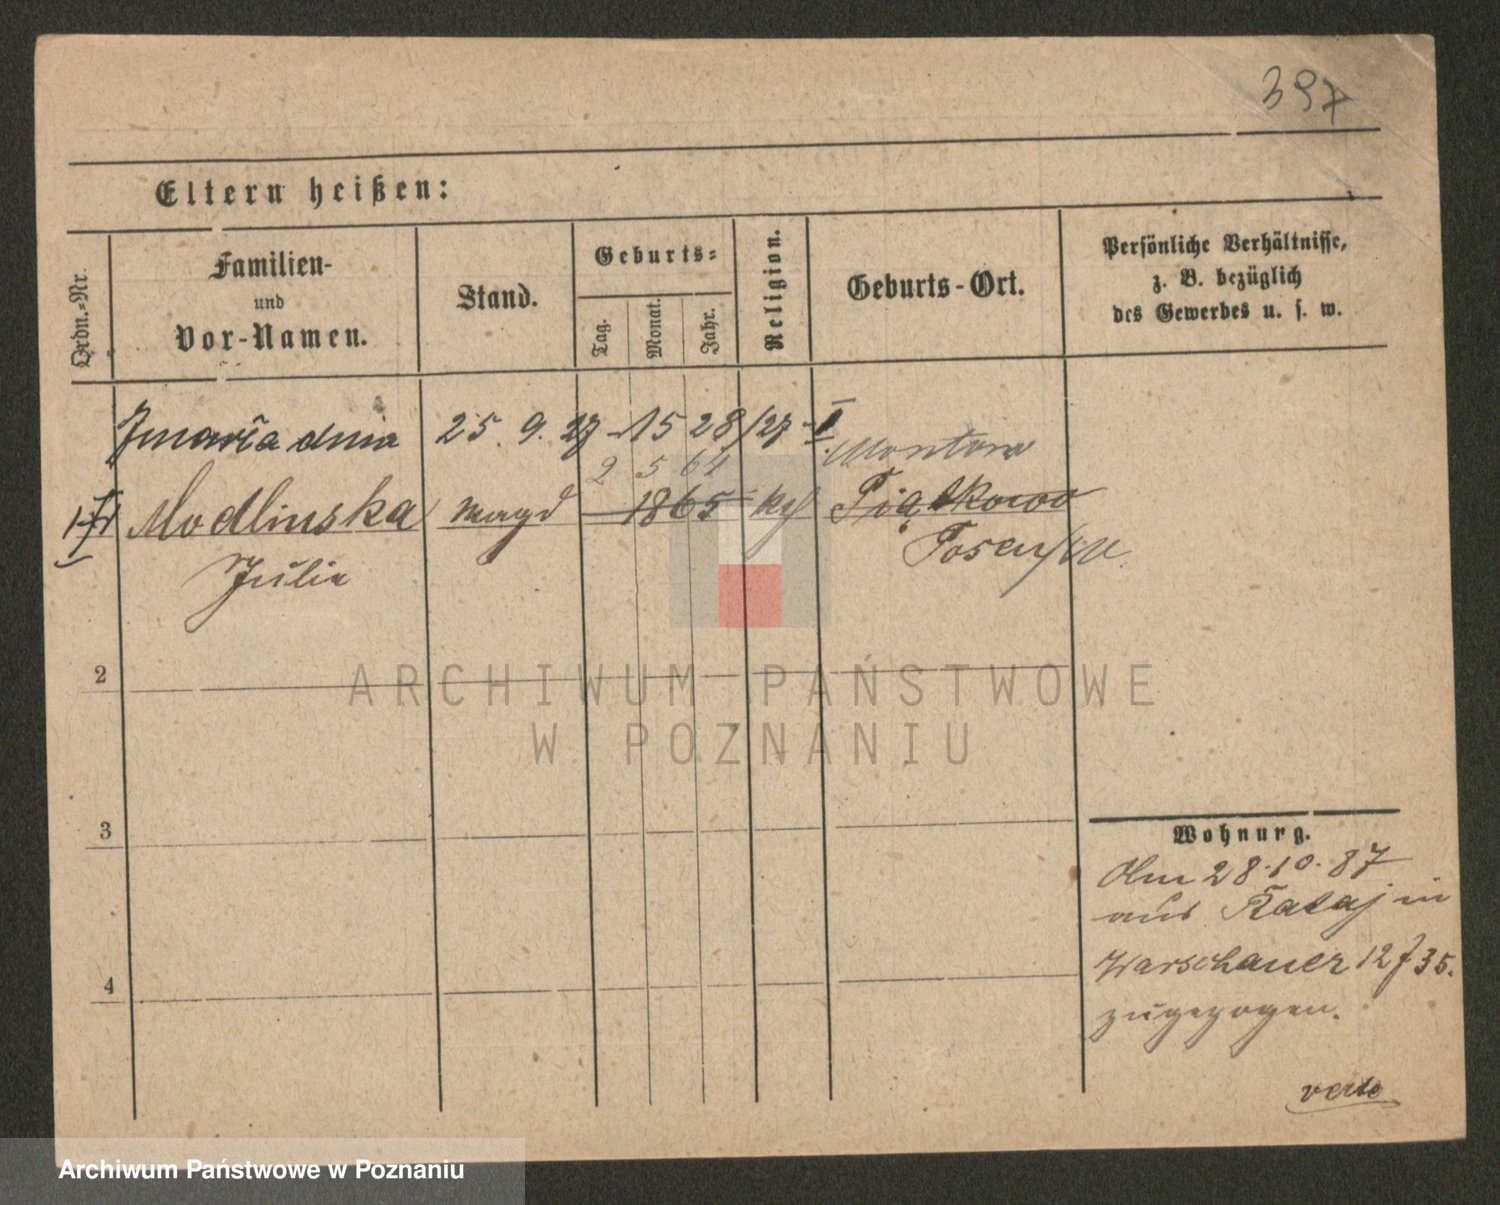 397
Eltern heißen:
Ordn.-Nr.
Familien-
und
Vor-Namen.
Stand.
Geburts-
Tag.
Monat.
Jahr.
Religion.
Geburts-Ort.
Persönliche Verhältnisse,
z. B. bezüglich
des Gewerbes u. s. w.
Zmarła dnia 25. 9. 27 - 1528/27 - I
2 5 64
Modlinska magd 1865 kg Piątkowo
Julie Posen
2
3
4
Wohnung.
Am 28.10.87
aus Rataj in
Warschauer 12 f 35.
zugezogen.
verte
ARCHIWUM PAŃSTWOWE
W POZNANIU
Archiwum Państwowe w Poznaniu